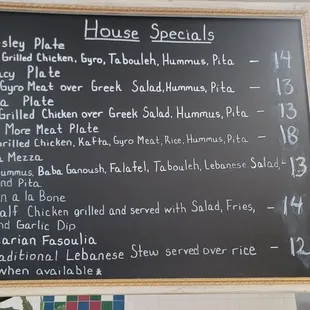 House Specials
sley Plate
Grilled Chicken, Gyro, Tabouleh, Hummus, Pita - 14
cy Plate
Gyro Meat over Greek Salad, Hummus, Pita - 13
a Plate
Grilled Chicken over Greek Salad. Hummus, Pita - 13
More Meat Plate
rilled Chicken, Kafta, Gyro Meat, Rice, Hummus, Pita - 18
a Mezza
ummus, Baba Ganoush, Falafel, Tabouleh, Lebanese Salad, - 13
nd Pita
n a la Bone
alf Chicken grilled and served with Salad, Fries, - 14
nd Garlic Dip
arian Fasoulia
aditional Lebanese Stew served over rice - 12
when available *